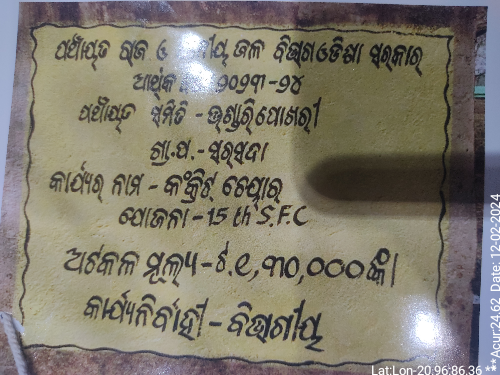 ପଞ୍ଚାୟତ ରାଜ ଓ ଜଳ ବିଭାଗ ଓଡିଶା ସରକାର
ଆର୍ଥିକ ୨୦୨୩-୨୪
ପଞ୍ଚାୟତ ସମିତି - ଭଣ୍ଡାରିପୋଖରୀ
ଗ୍ରା.ପ. - ସରସଦା
କାର୍ଯ୍ୟର ନାମ - କଂକ୍ରିଟ୍ ଚେୟାର୍
ଯୋଜନା - 15 th S.F.C
ଅଟକଳ ମୂଲ୍ୟ - ଟ.୧,୩୦,୦୦୦ଙ୍କା
କାର୍ଯ୍ୟନିର୍ବାହୀ - ବିଭାଗୀୟ
Lat:Lon-20.96:86.36
**Acur:24.62 Date: 12-02-2024